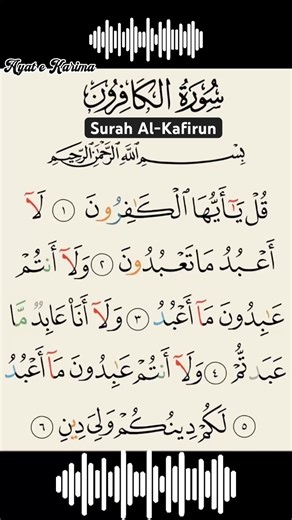 Ayat e Karima
سُورَةُ الْكَافِرُونَ
Surah Al-Kafirun
بِسْمِ اللَّهِ الرَّحْمَٰنِ الرَّحِيمِ
قُلْ يَـٰٓأَيُّهَا ٱلْكَـٰفِرُونَ ١ لَآ
أَعْبُدُ مَا تَعْبُدُونَ ٢ وَلَآ أَنتُمْ
عَـٰبِدُونَ مَآ أَعْبُدُ ٣ وَلَآ أَنَا۠ عَابِدٌ مَّا
عَبَدتُّمْ ٤ وَلَآ أَنتُمْ عَـٰبِدُونَ مَآ أَعْبُدُ
٥ لَكُمْ دِينُكُمْ وَلِىَ دِينِ ٦